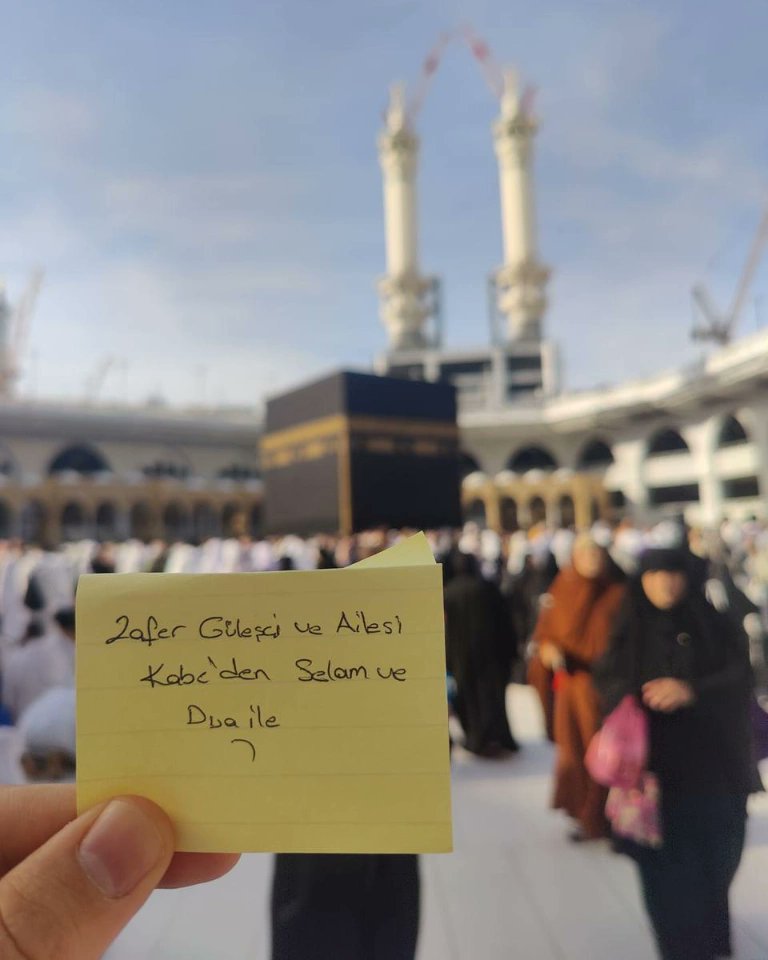 Zafer Güleşçi ve Ailesi
Kabe'den Selam ve
Dua ile